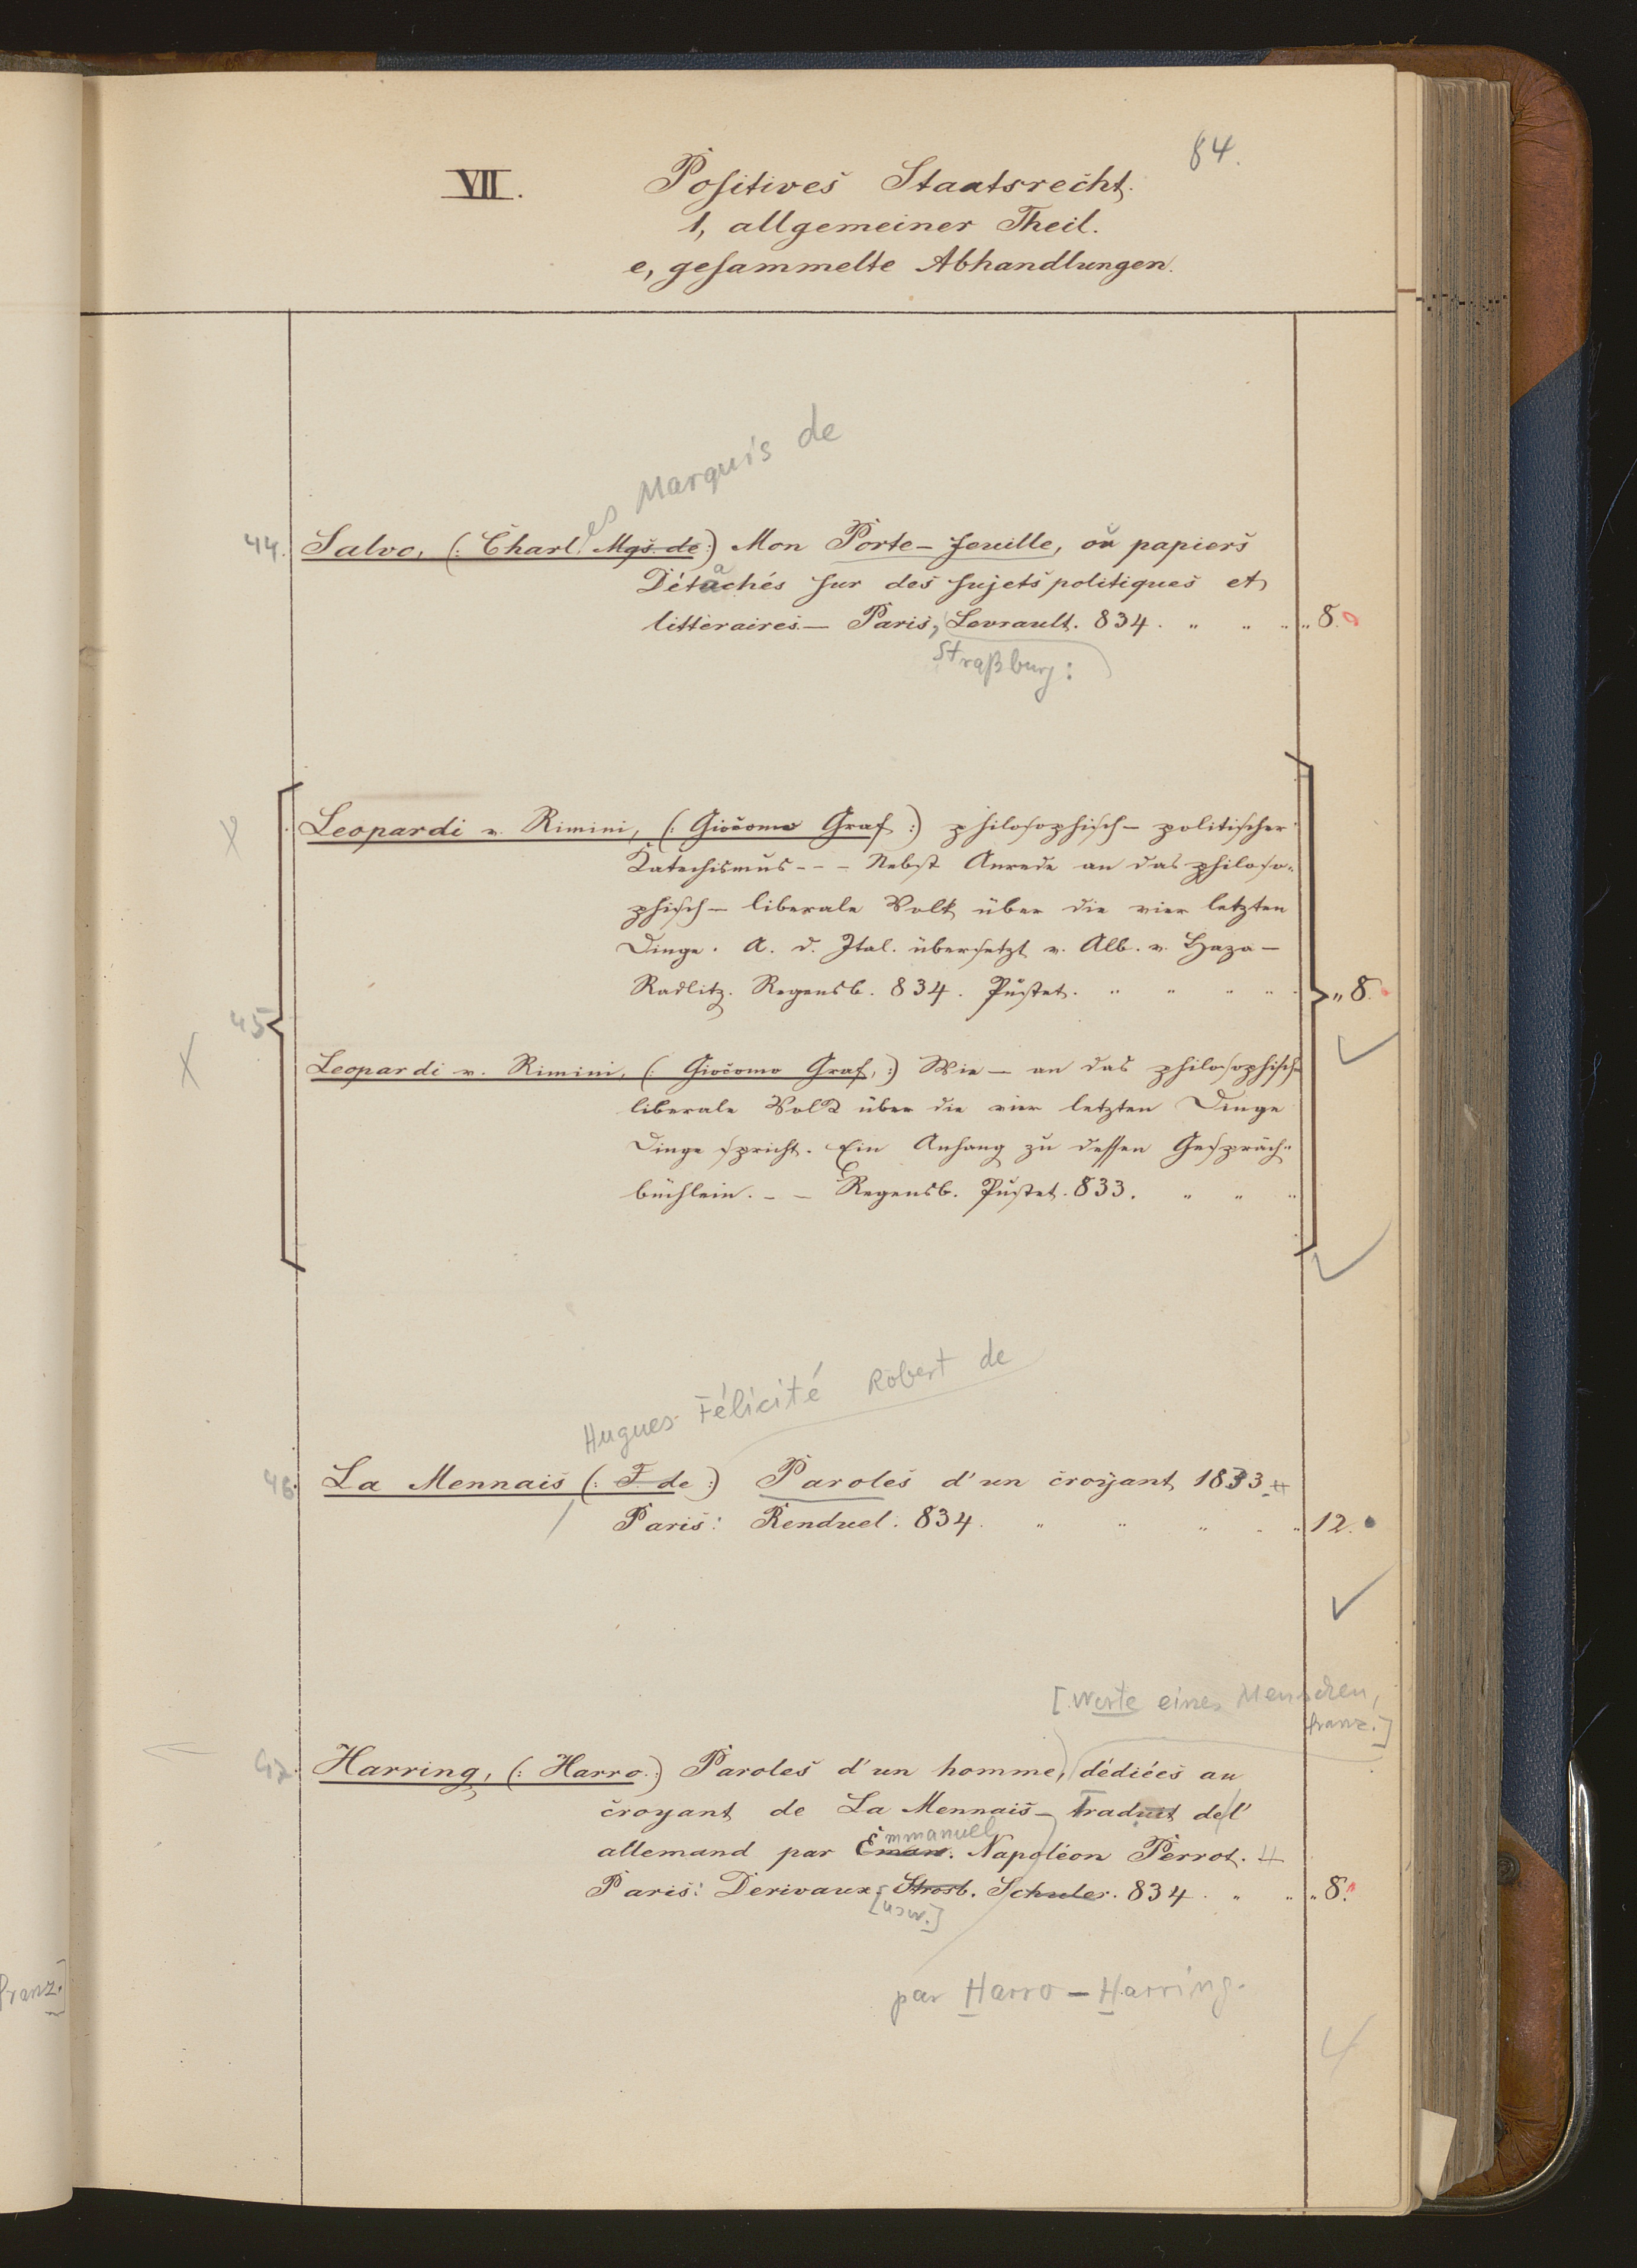 84.
VII. Positives Staatsrecht.
1, allgemeiner Theil.
e, gesammelte Abhandlungen.
es Marquis de
44. Salvo, (: Charl. Mqs. de :) Mon Porte-feuille, ou papiers
Détachés sur des sujets politiques et
littéraires. — Paris, Levrault. 834. " " " " 8.
Straßburg:
Leopardi v. Rimini, (: Giacomo Graf :) philosophisch-politischer
Katechismus - - - Nebst Anrede an das philoso-
phisch-liberale Volk über die vier letzten
Dinge. A. d. Ital. übersetzt v. Alb. v. Haza-
Radlitz. Regensb. 834. Pustet. " " " " " 8.
45
Leopardi v. Rimini, (: Giacomo Graf, :) Wie — an das philosophisch
liberale Volk über die vier letzten Dinge
Dinge spricht. Ein Anhang zu dessen Gespräch-
büchlein. - - Regensb. Pustet. 833. " " "
Hugues-Félicité Robert de
46. La Mennais (: F. de :) Paroles d'un croyant, 1833.
Paris: Renduel. 834. " " " " " 12.
[Worte eines Menschen,
franz.]
47. Harring, (: Harro :) Paroles d'un homme, dédiées au
croyant de La Mennais — Traduit de l'
mmanuel
allemand par Eman. Napoléon Perrot.
Paris: Derivaux; Strasb. Schuler. 834. " " " 8.
[usw.]
franz.]
par Harro-Harring.